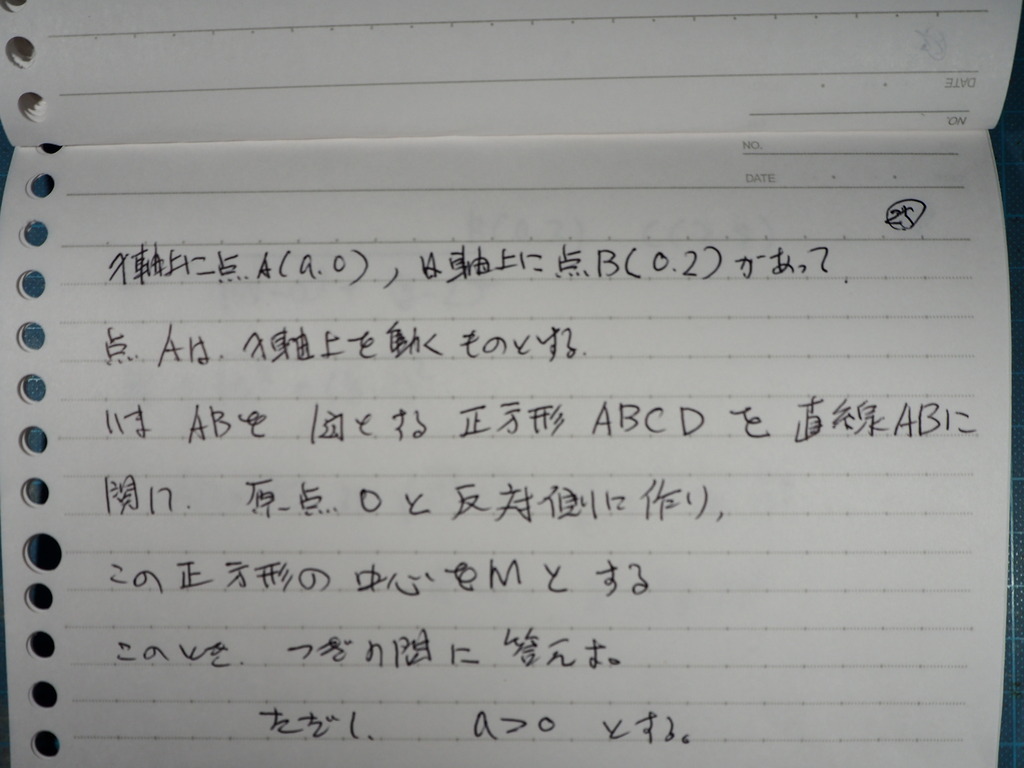 DATE
NO.
NO.
DATE
25
x軸上に点A(a.0), y軸上に点B(0.2)があって
点Aは、x軸上を動くものとする.
いま ABを1辺とする正方形ABCDを直線ABに
関して. 原点Oと反対側に作り,
この正方形の中心をMとする
このとき. つぎの問に答えよ。
ただし. a>0 とする。